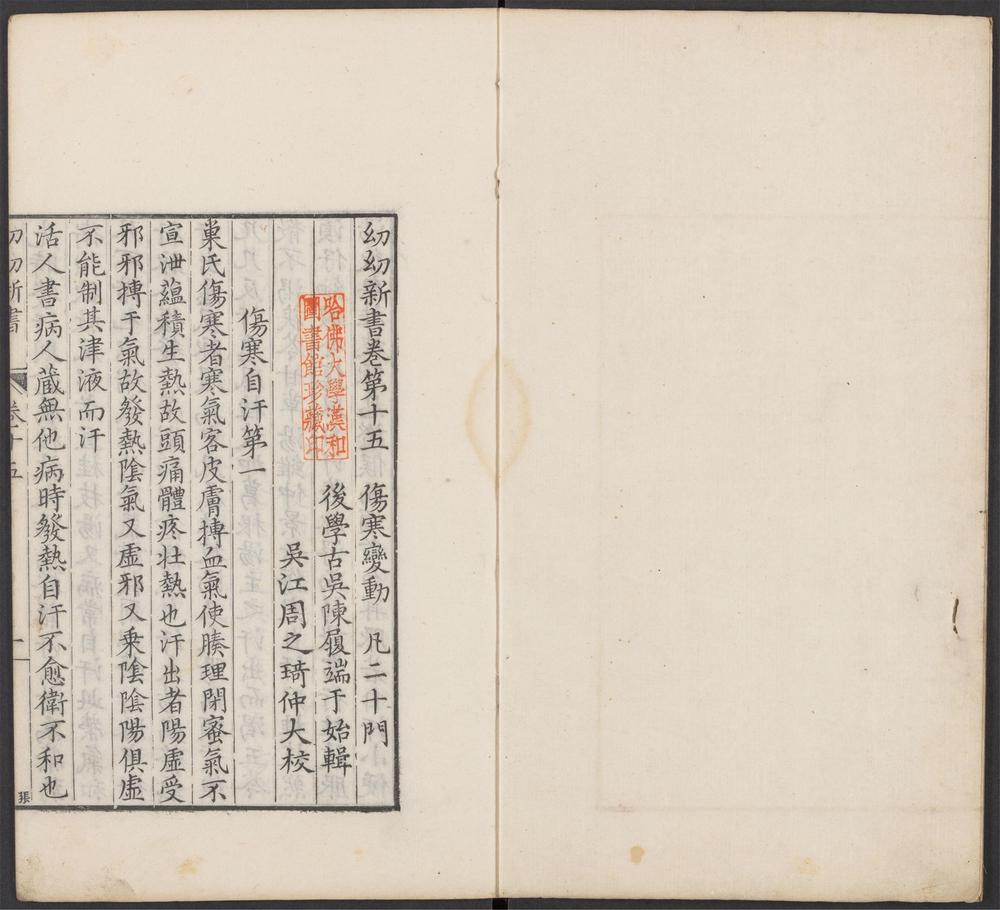 幼幼新書卷第十五　傷寒變動　凡二十門
後學古吳陳履端于始輯
吳江周之琦仲大校
傷寒自汗第一
巢氏傷寒者寒氣客皮膚搏血氣使腠理閉蜜氣不
宣泄蘊積生熱故頭痛體疼壯熱也汗出者陽虛受
邪邪搏于氣故發熱陰氣又虛邪又乗陰陰陽俱虛
不能制其津液而汗
活人書病人藏無他病時發熱自汗不愈衛不和也
幼幼新書　卷十五　一
張
哈佛大學漢和
圖書館珍藏印